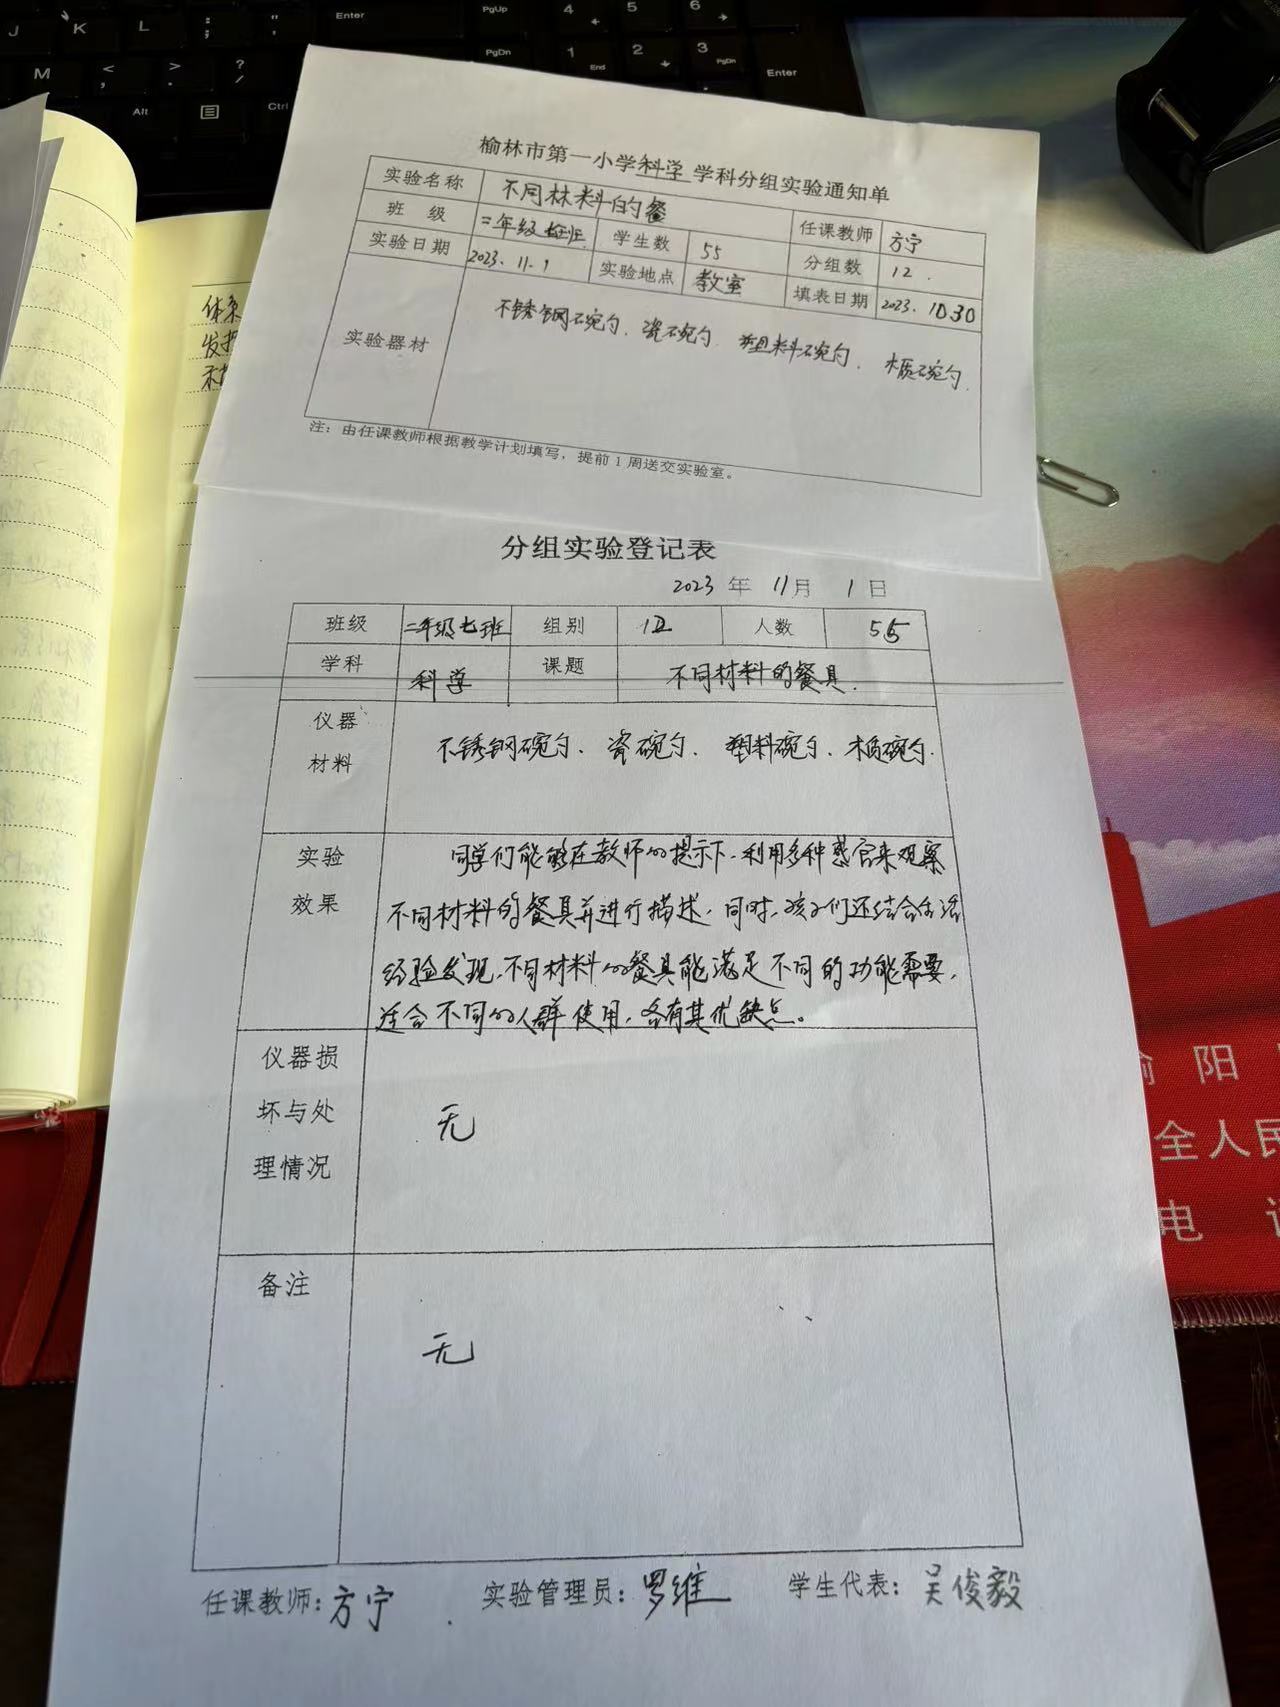 榆林市第一小学科学学科分组实验通知单
实验名称 不同材料的餐 任课教师 方宁
班 级 二年级七班 学生数 55 分组数 12.
实验日期 2023.11.1 实验地点 教室 填表日期 2023.10.30
实验器材 不锈钢碗勺、瓷碗勺、塑料碗勺、木质碗勺.
注：由任课教师根据教学计划填写，提前1周送交实验室。
分组实验登记表
2023 年 11月 1日
班级 二年级七班 组别 12 人数 55
学科 科学 课题 不同材料的餐具.
仪器
材料
不锈钢碗勺、瓷碗勺、塑料碗勺、木质碗勺.
实验
效果
同学们能够在教师的提示下，利用多种感官来观察
不同材料的餐具并进行描述，同时，孩子们还结合生活
经验发现，不同材料的餐具能满足不同的功能需要，
适合不同的人群使用，各有其优缺点。
仪器损
坏与处
理情况
无
备注
无
任课教师：方宁 实验管理员：罗维 学生代表：吴俊毅
体系
J K L ; : " ' Enter PgUp 4 5 6
M < , > . ? / PgDn 1 End 2 3 PgDn
Alt Ctrl Enter
阳
全人民
电